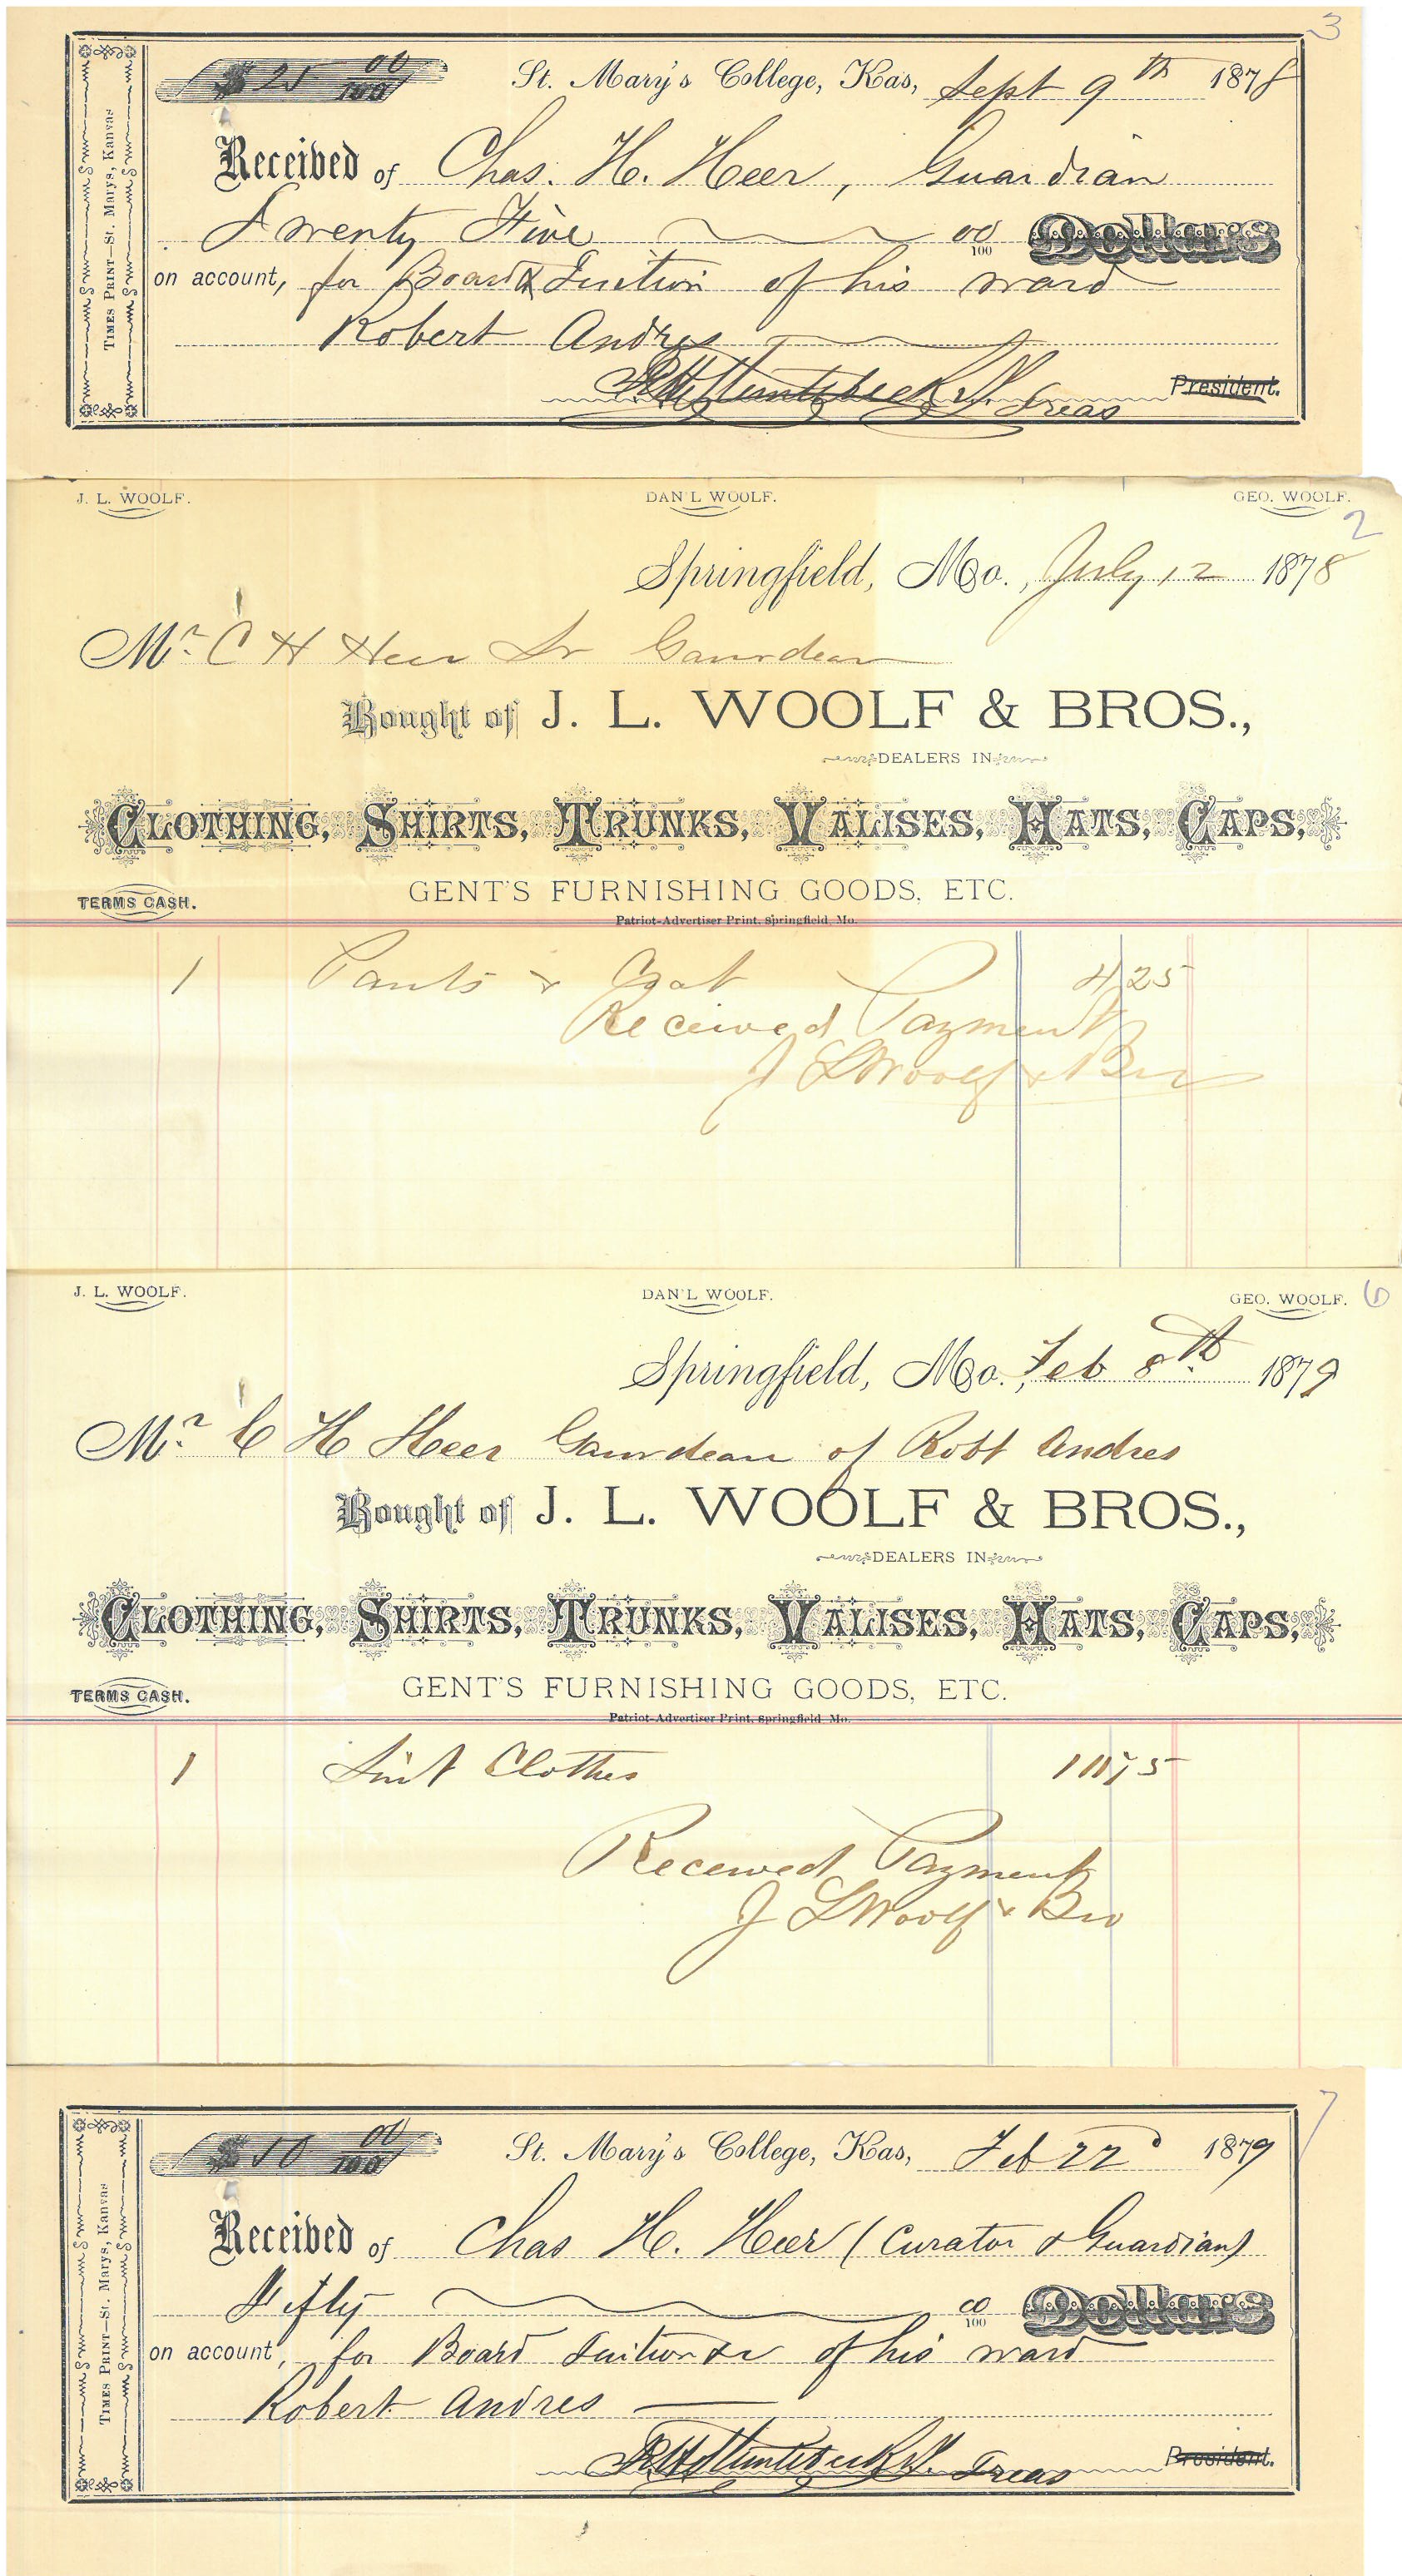 3
$25 00/100 St. Mary's College, Kas, Sept 9th 1878
Received of Chas. H. Heer, Guardian
Twenty Five 00/100 Dollars
on account, for Board & Tuition of his ward
Robert Andres
Treas President.
TIMES PRINT—St. Marys, Kansas
J. L. WOOLF. DAN'L WOOLF. GEO. WOOLF.
2
Springfield, Mo., July 12 1878
Mr. C H Heer Sr Gaurdean
Bought of J. L. WOOLF & BROS.,
DEALERS IN
CLOTHING, SHIRTS, TRUNKS, VALISES, HATS, CAPS,
TERMS CASH. GENT'S FURNISHING GOODS, ETC.
Patriot-Advertiser Print, Springfield, Mo.
1 Pants & Coat 4 25
Received Payment
J L Woolf & Bro
J. L. WOOLF. DAN'L WOOLF. GEO. WOOLF. 6
Springfield, Mo., Feb 8th 1879
Mr. C H Heer Gaurdean of Robt Andres
Bought of J. L. WOOLF & BROS.,
DEALERS IN
CLOTHING, SHIRTS, TRUNKS, VALISES, HATS, CAPS,
TERMS CASH. GENT'S FURNISHING GOODS, ETC.
Patriot-Advertiser Print, Springfield, Mo.
1 Suit Clothes
Received Payment
J L Woolf & Bro
7
00/100 St. Mary's College, Kas, Feb 22d 1879
Received of Chas H. Heer (Curator & Guardian)
Fifty 00/100 Dollars
on account, for Board Tuition &c of his ward
Robert Andres
Treas President.
TIMES PRINT—St. Marys, Kansas